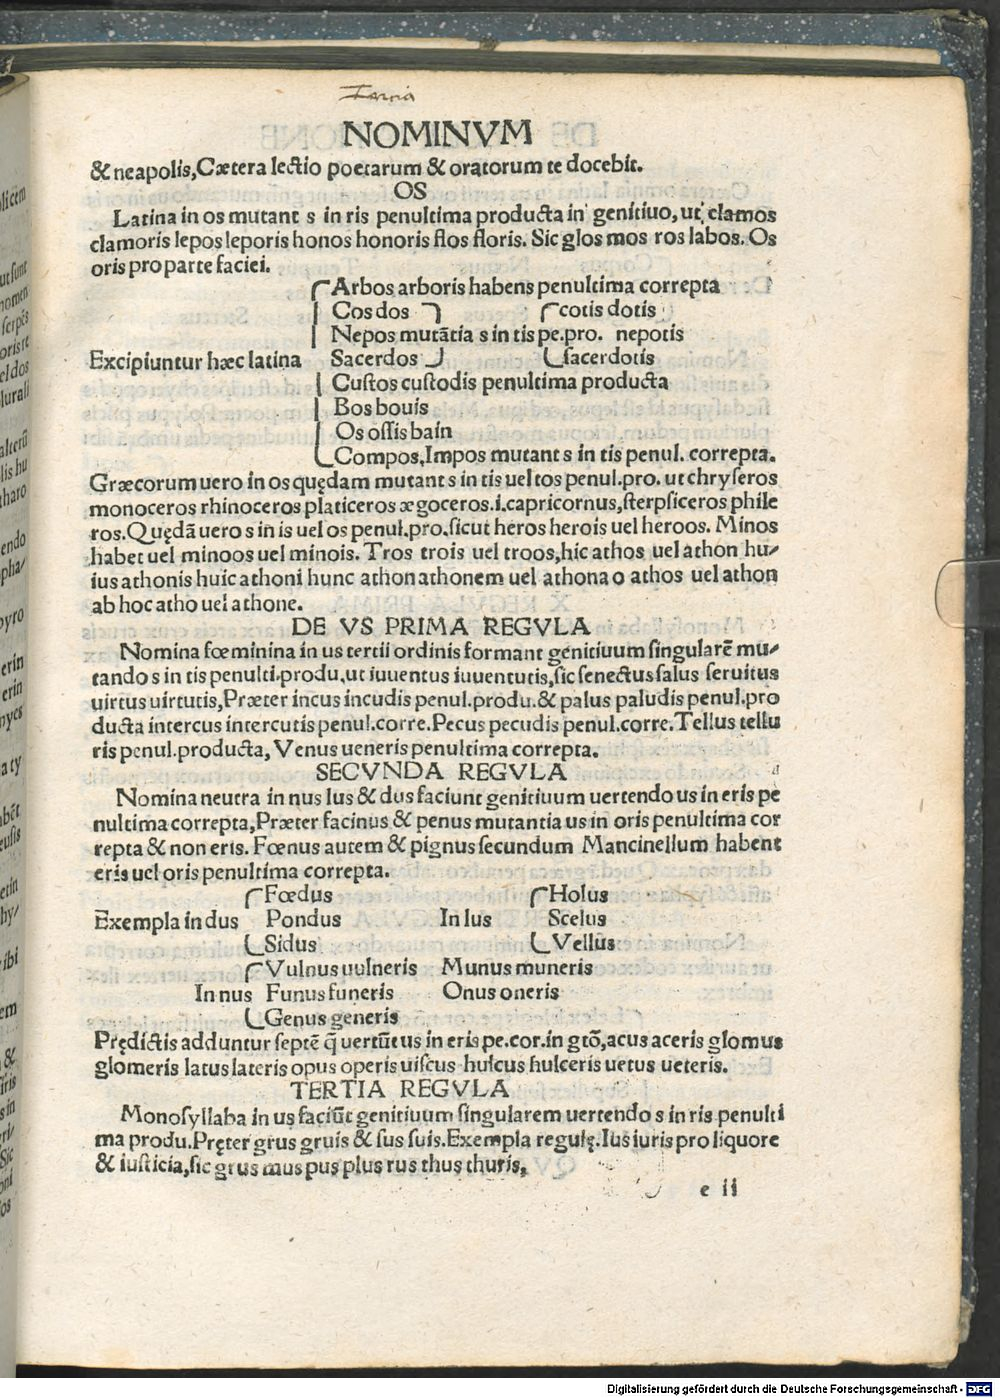 NOMINVM
& neapolis, Cætera lectio poetarum & oratorum te docebit.
OS
Latina in os mutant s in ris penultima producta in genitiuo, ut clamos
clamoris lepos leporis honos honoris flos floris. Sic glos mos ros labos. Os
oris pro parte faciei.
Arbos arboris habens penultima correpta
Cos dos cotis dotis
Nepos mutãtia s in tis pe.pro. nepotis
Excipiuntur hæc latina Sacerdos sacerdotis
Custos custodis penultima producta
Bos bouis
Os ossis bain
Compos, Impos mutant s in tis penul. correpta.
Græcorum uero in os quędam mutant s in tis uel tos penul.pro. ut chryseros
monoceros rhinoceros platiceros ægoceros.i.capricornus, sterpsiceros phile
ros. Quędã uero s in is uel os penul.pro. sicut heros herois uel heroos. Minos
habet uel minoos uel minois. Tros trois uel troos, hic athos uel athon hu/
ius athonis huic athoni hunc athon athonem uel athona o athos uel athon
ab hoc atho uel athone.
DE VS PRIMA REGVLA
Nomina fœminina in us tertii ordinis formant genitiuum singularẽ mu/
tando s in tis penulti.produ. ut iuuentus iuuentutis, sic senectus salus seruitus
uirtus uirtutis, Præter incus incudis penul.produ. & palus paludis penul.pro
ducta intercus intercutis penul.corre. Pecus pecudis penul.corre. Tellus tellu
ris penul.producta, Venus ueneris penultima correpta.
SECVNDA REGVLA
Nomina neutra in nus lus & dus faciunt genitiuum uertendo us in eris pe
nultima correpta, Præter facinus & penus mutantia us in oris penultima cor
repta & non eris. Fœnus autem & pignus secundum Mancinellum habent
eris uel oris penultima correpta.
Fœdus Holus
Exempla in dus Pondus In lus Scelus
Sidus Vellus
Vulnus uulneris Munus muneris
In nus Funus funeris Onus oneris
Genus generis
Prędictis adduntur septẽ q̃ uertũt us in eris pe.cor. in gtõ, acus aceris glomus
glomeris latus lateris opus operis uiscus hulcus hulceris uetus ueteris.
TERTIA REGVLA
Monosyllaba in us faciũt genitiuum singularem uertendo s in ris penulti
ma produ. Pręter grus gruis & sus suis. Exempla regulę. Ius iuris pro liquore
& iusticia, sic grus mus pus plus rus thus thuris,
e ii
Digitalisierung gefördert durch die Deutsche Forschungsgemeinschaft - DFG